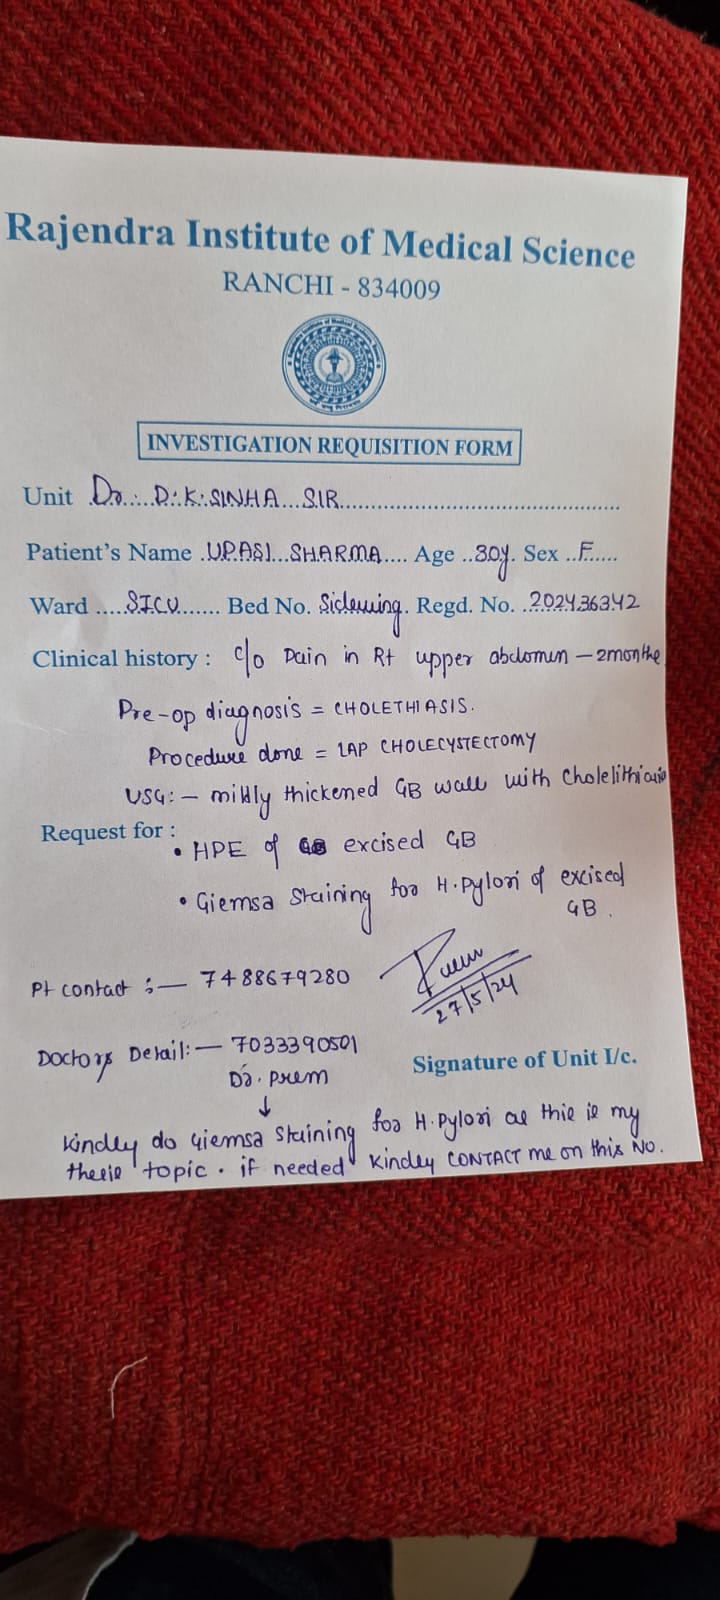 Rajendra Institute of Medical Science
RANCHI - 834009
INVESTIGATION REQUISITION FORM
Unit Dr. D.K. SINHA SIR
Patient's Name UPASI SHARMA Age 30y. Sex F
Ward SICU Bed No. Sidewing. Regd. No. 202436342
Clinical history : c/o Pain in Rt upper abdomen — 2 months
Pre-op diagnosis = CHOLETHIASIS.
Procedure done = LAP CHOLECYSTECTOMY
USG:- mildly thickened GB wall with Cholelithiasis
Request for :
• HPE of excised GB
• Giemsa Staining for H.Pylori of excised
GB.
Pt contact :— 7488679280
27/5/24
Doctors Detail:— 7033390501
Signature of Unit I/c.
Dr. Prem
↓
Kindly do Giemsa Staining for H.Pylori as this is my
thesis topic. if needed kindly CONTACT me on this No.